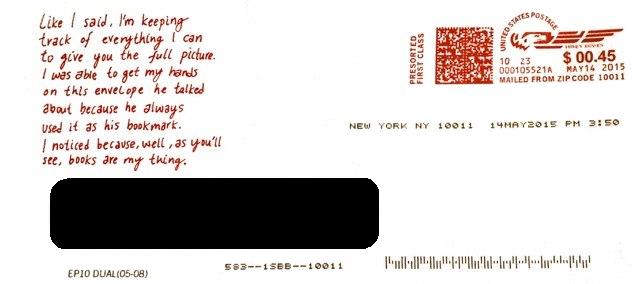 Like I said, I'm keeping
track of everything I can
to give you the full picture.
I was able to get my hands
on this envelope he talked
about because he always
used it as his bookmark.
I noticed because, well, as you'll
see, books are my thing.
PRESORTED
FIRST CLASS
UNITED STATES POSTAGE
PITNEY BOWES
10 23
$ 00.45
000105521A MAY14 2015
MAILED FROM ZIP CODE 10011
NEW YORK NY 10011 14MAY2015 PM 3:50
EP10 DUAL(05-08)
583--1SBB--10011